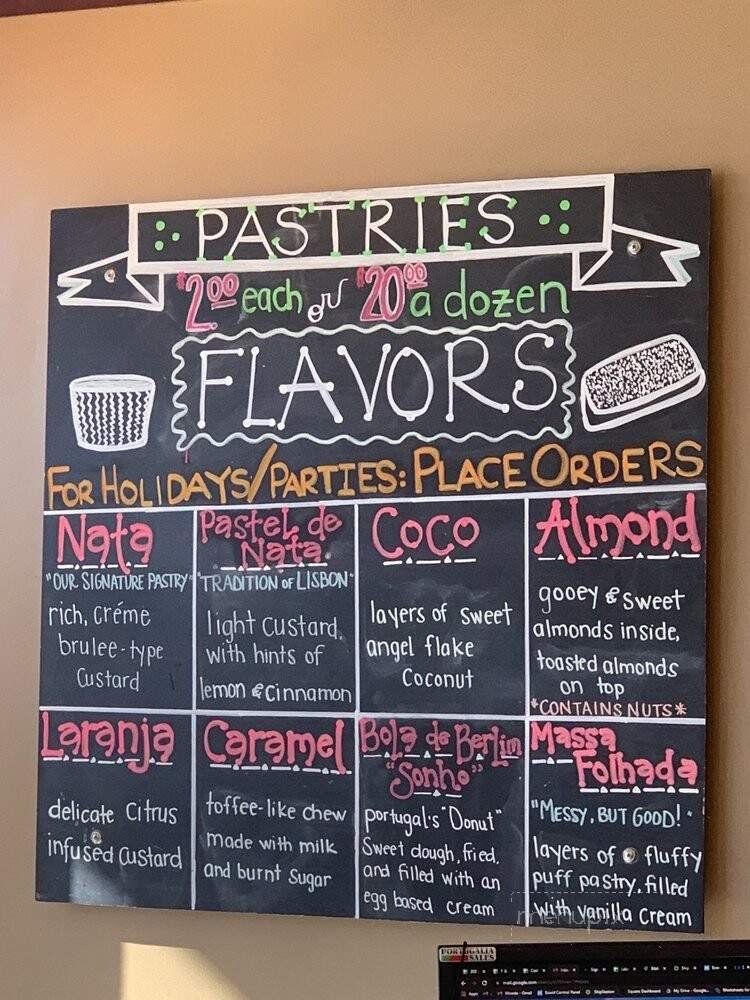 PASTRIES
$2.00 each or $20.00 a dozen
FLAVORS
FOR HOLIDAYS/PARTIES: PLACE ORDERS
Nata
"OUR SIGNATURE PASTRY"
rich, créme
brulee-type
custard
Pastel de
Nata
"TRADITION OF LISBON"
light custard,
with hints of
lemon & cinnamon
Coco
layers of sweet
angel flake
Coconut
Almond
gooey & sweet
almonds inside,
toasted almonds
on top
*CONTAINS NUTS*
Laranja
delicate citrus
infused custard
Caramel
toffee-like chew
made with milk
and burnt sugar
Bola de Berlim
"Sonho"
portugal's "Donut"
Sweet dough, fried,
and filled with an
egg based cream
Massa
Folhada
"MESSY, BUT GOOD!"
layers of fluffy
puff pastry, filled
with vanilla cream
menupix
PORTUGALIA
SALES
mail.google.com